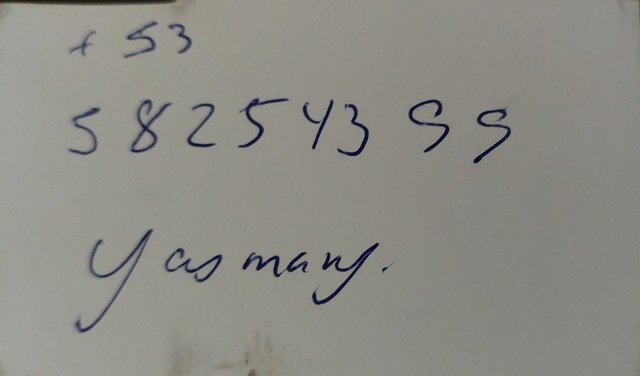 + 53
5 8 2 5 4 3 9 9
Yasmany.